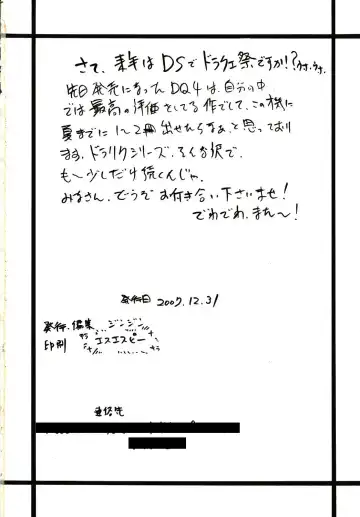 さて、来年はDSでドラクエ祭ですか!?ウホ、ウホ。
先日発売になったDQ4は、自分の中
では最高の評価をしてる作でして、この機に
夏までに1〜2冊出せたらなぁと思っており
ます。ドラリクシリーズ。そんな訳で、
も〜少しだけ続くんじゃ。
みなさん、どうぞお付き合い下さいませ!
でわでわ、また〜!
発行日 2007.12.31
発行・編集 ジンジン
印刷 エスエスピー
連絡先